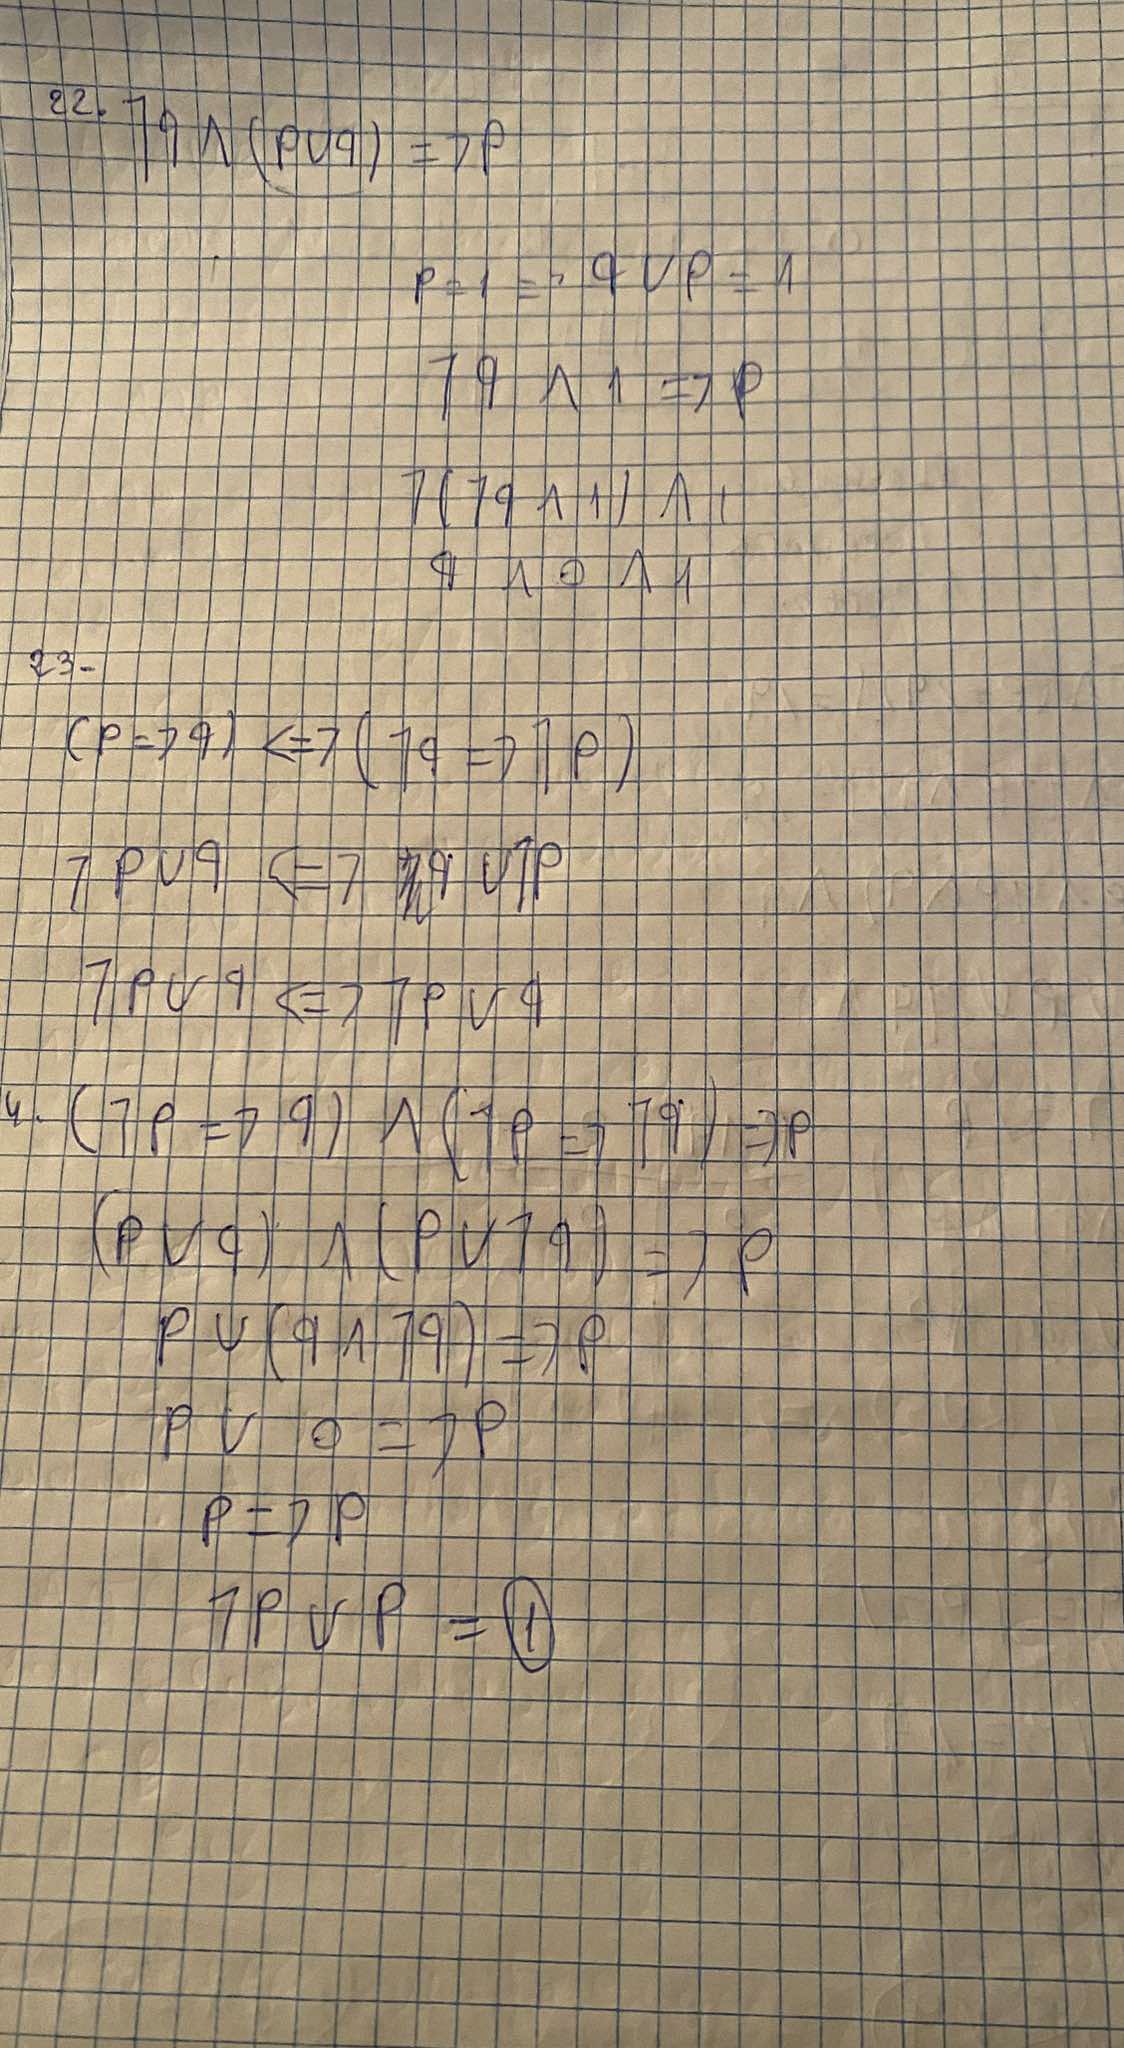 22. ⌉q ∧ (p∨q) => p
p=1 => q ∨ p = 1
⌉q ∧ 1 => p
⌉(⌉q ∧ 1) ∧ 1
q ∧ 0 ∧ 1
23-
(p=>q) <=> (⌉q => ⌉p)
⌉p∨q <=> q ∨⌉p
⌉p∨q <=> ⌉p∨q
4. (⌉p => q) ∧ (⌉p => ⌉q) => p
(p∨q) ∧ (p∨⌉q) => p
p∨(q∧⌉q) => p
p ∨ 0 => p
p => p
⌉p∨p = 1